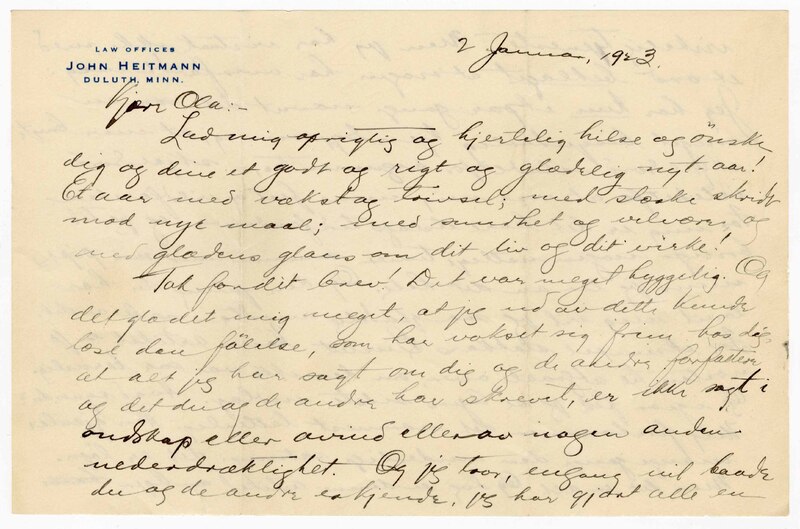 LAW OFFICES
JOHN HEITMANN
DULUTH, MINN.
2 Januar, 1923.
Kjære Ola:-
Lad mig oprigtig og hjertelig hilse og önske
dig og dine et godt og rigt og glædelig nyt-aar!
Et aar med vækst og trivsel; med stærke skridt
mod nye maal; med sundhet og velvære og
med glædens glans om dit liv og dit virke!
Tak for dit brev! Det var meget hyggelig. Og
det glædet mig meget, at jeg ud av dette kunde
læse den fölelse, som har vokset sig frem hos dig,
at alt jeg har sagt om dig og de andre forfattere
og det du og de andre har skrevet, er ikke sagt i
ondskap eller avind eller av nogen anden
nederdrægtighet. Og jeg tror, engang vil baade
du og de andre erkjende, jeg har gjort alle en